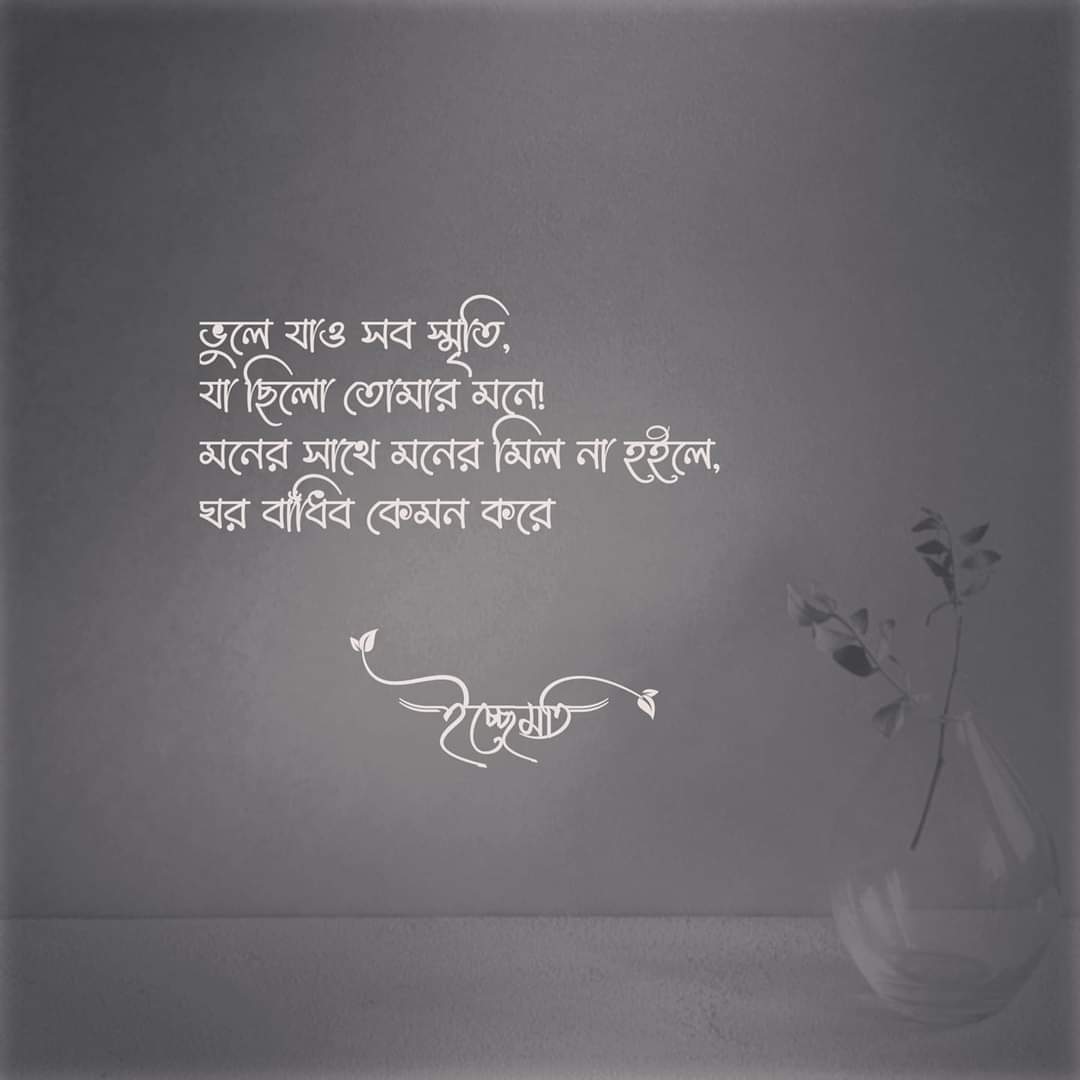 ভুলে যাও সব স্মৃতি,
যা ছিলো তোমার মনে!
মনের সাথে মনের মিল না হইলে,
ঘর বাঁধিব কেমন করে
ইচ্ছেমতি